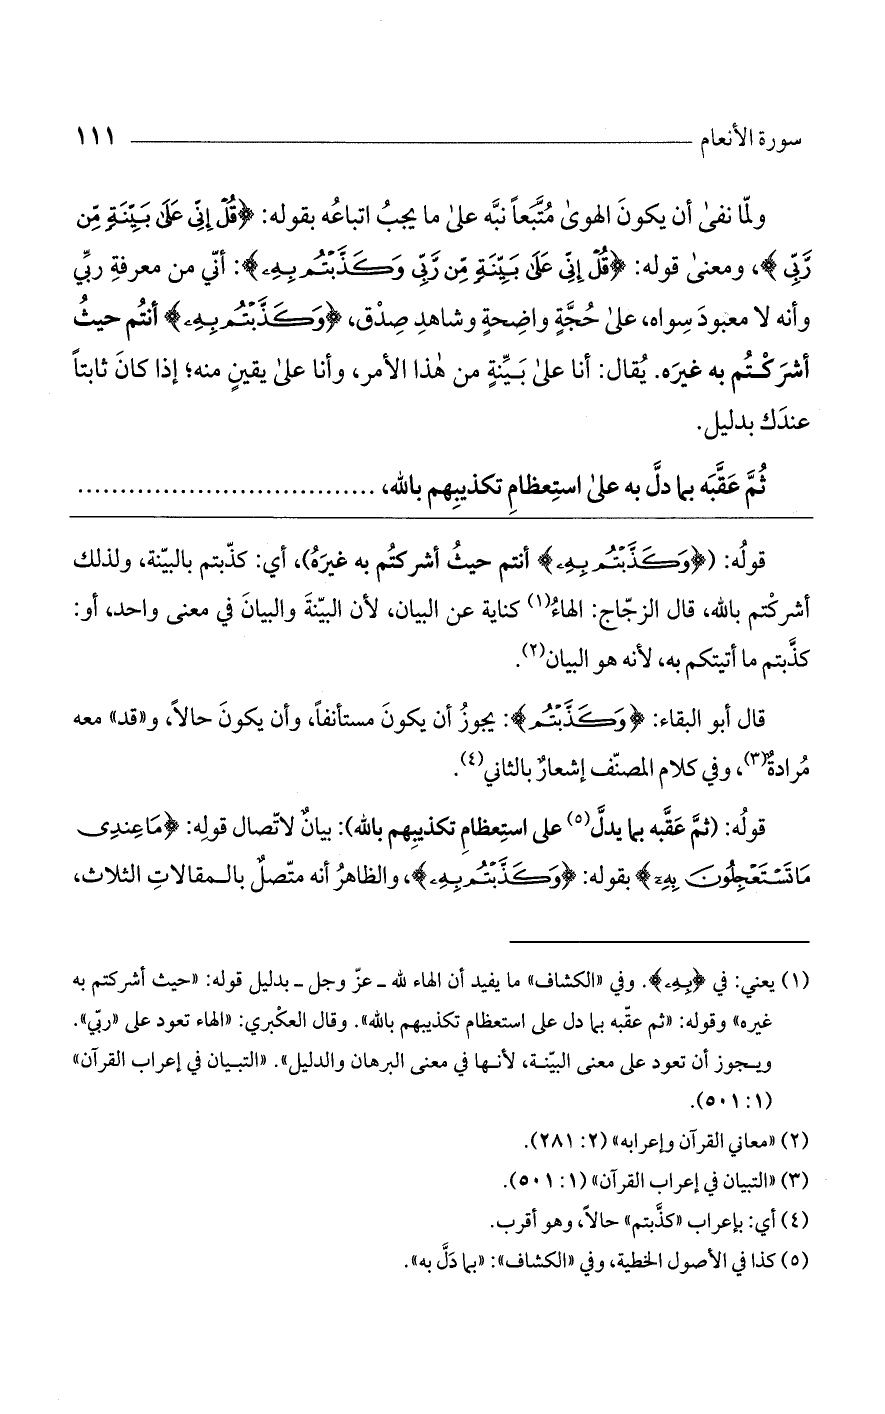 سورة الأنعام ١١١
ولمّا نفىٰ أن يكونَ الهوىٰ مُتَّبَعاً نبَّه علىٰ ما يجبُ اتباعُه بقوله: ﴿قُلْ إِنِّي عَلَىٰ بَيِّنَةٍ مِّن
رَّبِّي﴾، ومعنىٰ قوله: ﴿قُلْ إِنِّي عَلَىٰ بَيِّنَةٍ مِّن رَّبِّي وَكَذَّبْتُم بِهِ﴾: أنّي من معرفةِ ربِّي
وأنه لا معبودَ سِواه، علىٰ حُجَّةٍ واضِحةٍ وشاهدِ صِدْق، ﴿وَكَذَّبْتُم بِهِ﴾ أنتُم حيثُ
أشرَكْتُم به غيرَه. يُقال: أنا علىٰ بَيِّنةٍ من هٰذا الأمر، وأنا علىٰ يقينٍ منه؛ إذا كانَ ثابتاً
عندَك بدليل.
ثُمَّ عَقَّبَه بما دلَّ به علىٰ استعظامِ تكذيبِهم بالله، ..................................
قولُه: (﴿وَكَذَّبْتُم بِهِ﴾ أنتم حيثُ أشركتُم به غيرَهُ)، أي: كذّبتم بالبيّنة، ولذلك
أشركْتم بالله، قال الزجّاج: الهاءُ(١) كناية عن البيان، لأن البيّنةَ والبيانَ في معنى واحد، أو:
كذَّبتم ما أتيتكم به، لأنه هو البيان(٢).
قال أبو البقاء: ﴿وَكَذَّبْتُم﴾: يجوزُ أن يكونَ مستأنفاً، وأن يكونَ حالاً، و«قد» معه
مُرادةٌ(٣)، وفي كلام المصنّف إشعارٌ بالثاني(٤).
قولُه: (ثمَّ عَقَّبه بما يدلَّ(٥) على استِعظامِ تكذيبِهم بالله): بيانٌ لاتّصال قولِه: ﴿مَا عِندِي
مَا تَسْتَعْجِلُونَ بِهِ﴾ بقوله: ﴿وَكَذَّبْتُم بِهِ﴾، والظاهرُ أنه متّصلٌ بالـمقالاتِ الثلاث،
(١) يعني: في ﴿بِهِ﴾. وفي «الكشاف» ما يفيد أن الهاء لله ـ عزّ وجل ـ بدليل قوله: «حيث أشركتم به
غيره» وقوله: «ثم عقّبه بما دل على استعظام تكذيبهم بالله». وقال العكْبري: «الهاء تعود على «ربّي».
ويـجوز أن تعود على معنى البيّنـة، لأنـها في معنى البرهان والدليل». «التبـيان في إعراب القرآن»
(١: ٥٠١).
(٢) «معاني القرآن وإعرابه» (٢: ٢٨١).
(٣) «التبيان في إعراب القرآن» (١: ٥٠١).
(٤) أي: بإعراب «كذَّبتم» حالاً، وهو أقرب.
(٥) كذا في الأصول الخطية، وفي «الكشاف»: «بما دَلَّ به».